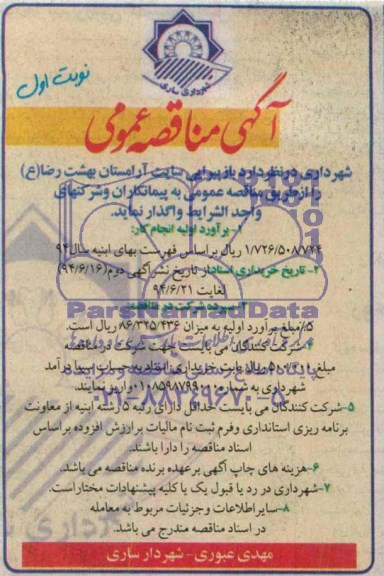 شهرداری ساری
نوبت اول
آگهی مناقصه عمومی
شهرداری در نظر دارد باز پیرایی سایت آرامستان بهشت رضا(ع)
را از طریق مناقصه عمومی به پیمانکاران و شرکتهای
واجد الشرایط واگذار نماید.
۱- برآورد اولیه انجام کار:
۱/۷۲۶/۵۰۸/۷۲۴ ریال براساس فهرست بهای ابنیه سال ۹۴
۲- تاریخ خریداری اسناد از تاریخ نشر آگهی دوم (۹۴/۶/۱۶)
لغایت ۹۴/۶/۲۱
۳- سپرده شرکت در مناقصه:
۵٪ مبلغ برآورد اولیه به میزان ۸۶/۳۲۵/۴۳۶ ریال است.
ParsNamadData
۴- شرکت کنندگان می بایست جهت شرکت در مناقصه
مبلغ ریال بابت خریداری اسناد به حساب سیبا درآمد
شهرداری به شماره واریز نمایند.
۰۲۱-۸۸۳۴۹۶۷۰-۵
۵- شرکت کنندگان می بایست حداقل دارای رتبه ۵ رشته ابنیه از معاونت
برنامه ریزی استانداری و فرم ثبت نام مالیات بر ارزش افزوده بر اساس
اسناد مناقصه را دارا باشند.
۶- هزینه های چاپ آگهی بر عهده برنده مناقصه می باشد.
۷- شهرداری در رد یا قبول یک یا کلیه پیشنهادات مختار است.
۸- سایر اطلاعات و جزئیات مربوط به معامله
در اسناد مناقصه مندرج می باشد.
مهدی عبوری - شهردار ساری